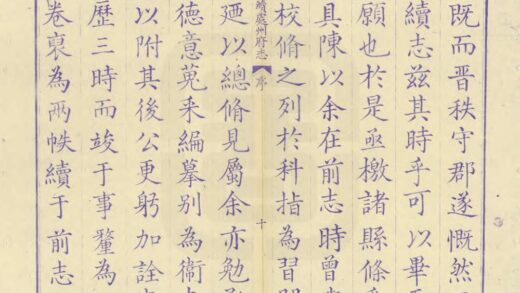 既而晋秩守郡遂慨然
續志兹其時乎可以畢
願也於是亟檄諸縣條
具陳以余在前志時曾
校脩之列於科指為習
續處州府志
序
十
廼以總脩見屬余亦勉
德意蒐采編摹别為衞
以附其後公更躬加詮
歷三時而竣于事釐為
卷裒為兩帙續于前志